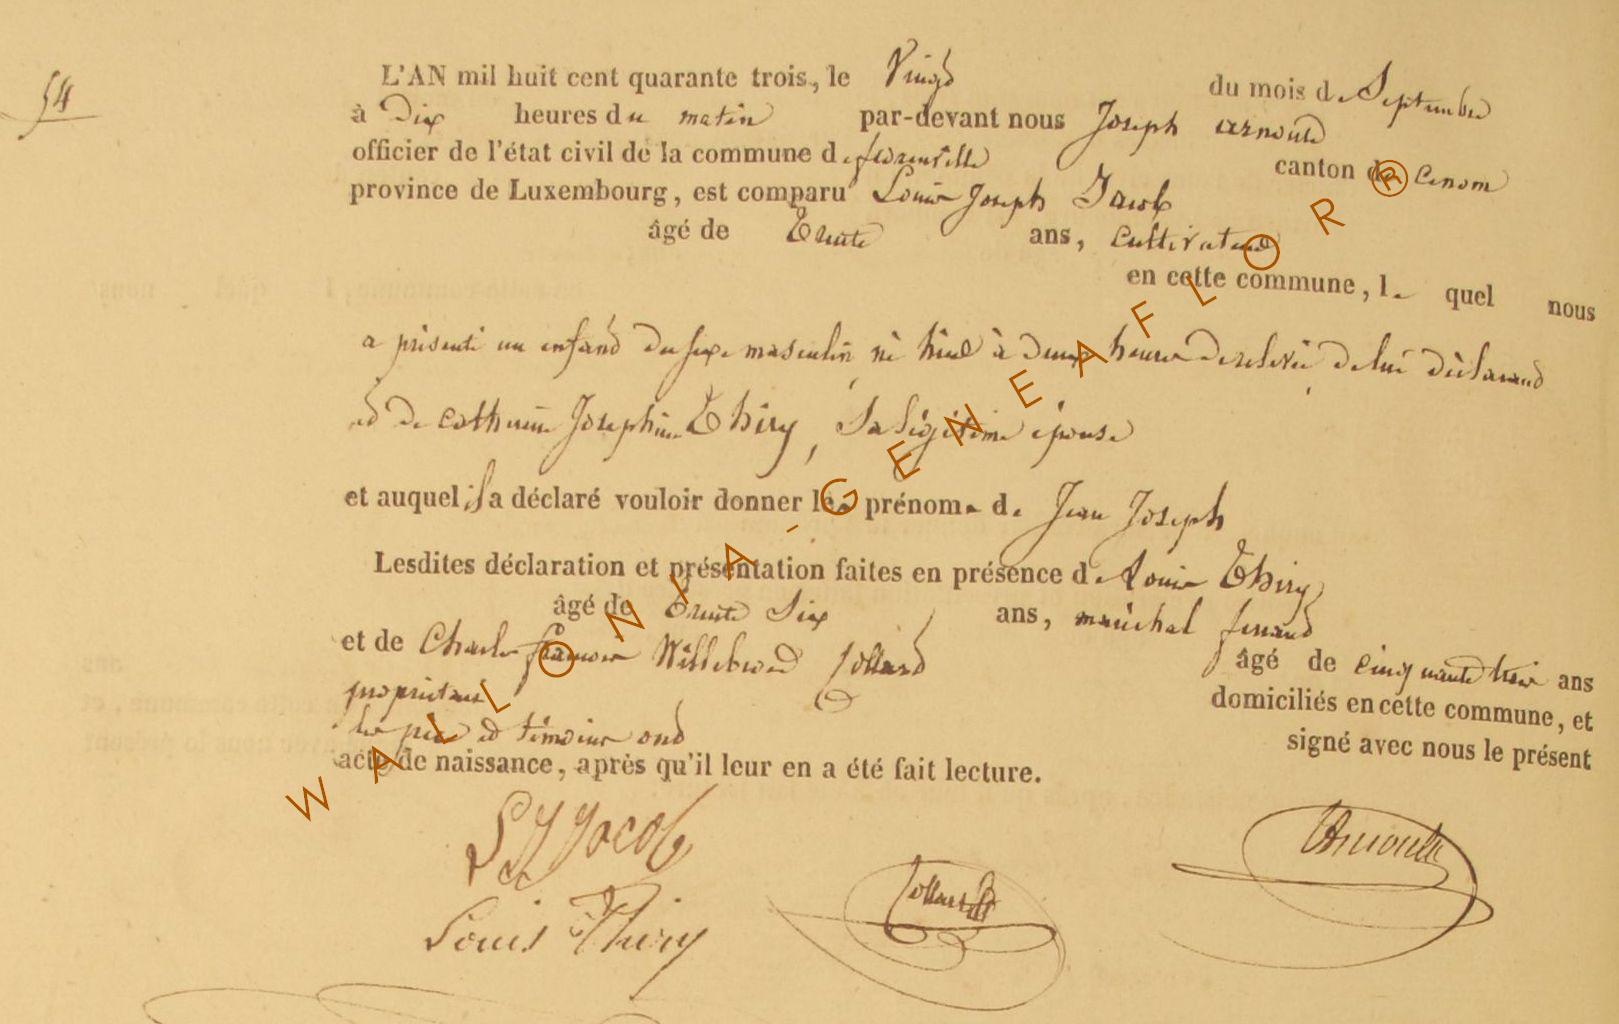 54
L'AN mil huit cent quarante trois, le Vingt du mois de Septembre
à Dix heures du matin par-devant nous Joseph arnould
officier de l'état civil de la commune de florenville canton de idem
province de Luxembourg, est comparu Louis Joseph Jacob
âgé de Trente ans, cultivateur
en cette commune, le quel nous
a présenté un enfant du sexe masculin né hier à deux heures de relevée de lui déclarant
et de catherine Joséphine Thiry, Sa légitime épouse
et auquel il a déclaré vouloir donner les prénoms de Jean Joseph
Lesdites déclaration et présentation faites en présence de Louis Thiry
âgé de trente Six ans, maréchal ferrant
et de Charles françois Willebrord Collard âgé de cinquante trois ans
propriétaire domiciliés en cette commune, et
les père et témoins ont signé avec nous le présent
acte de naissance, après qu'il leur en a été fait lecture.
LJ Jacob
Arnould
Collard
Louis Thiry
WALLONIA-GENEAFLOR®